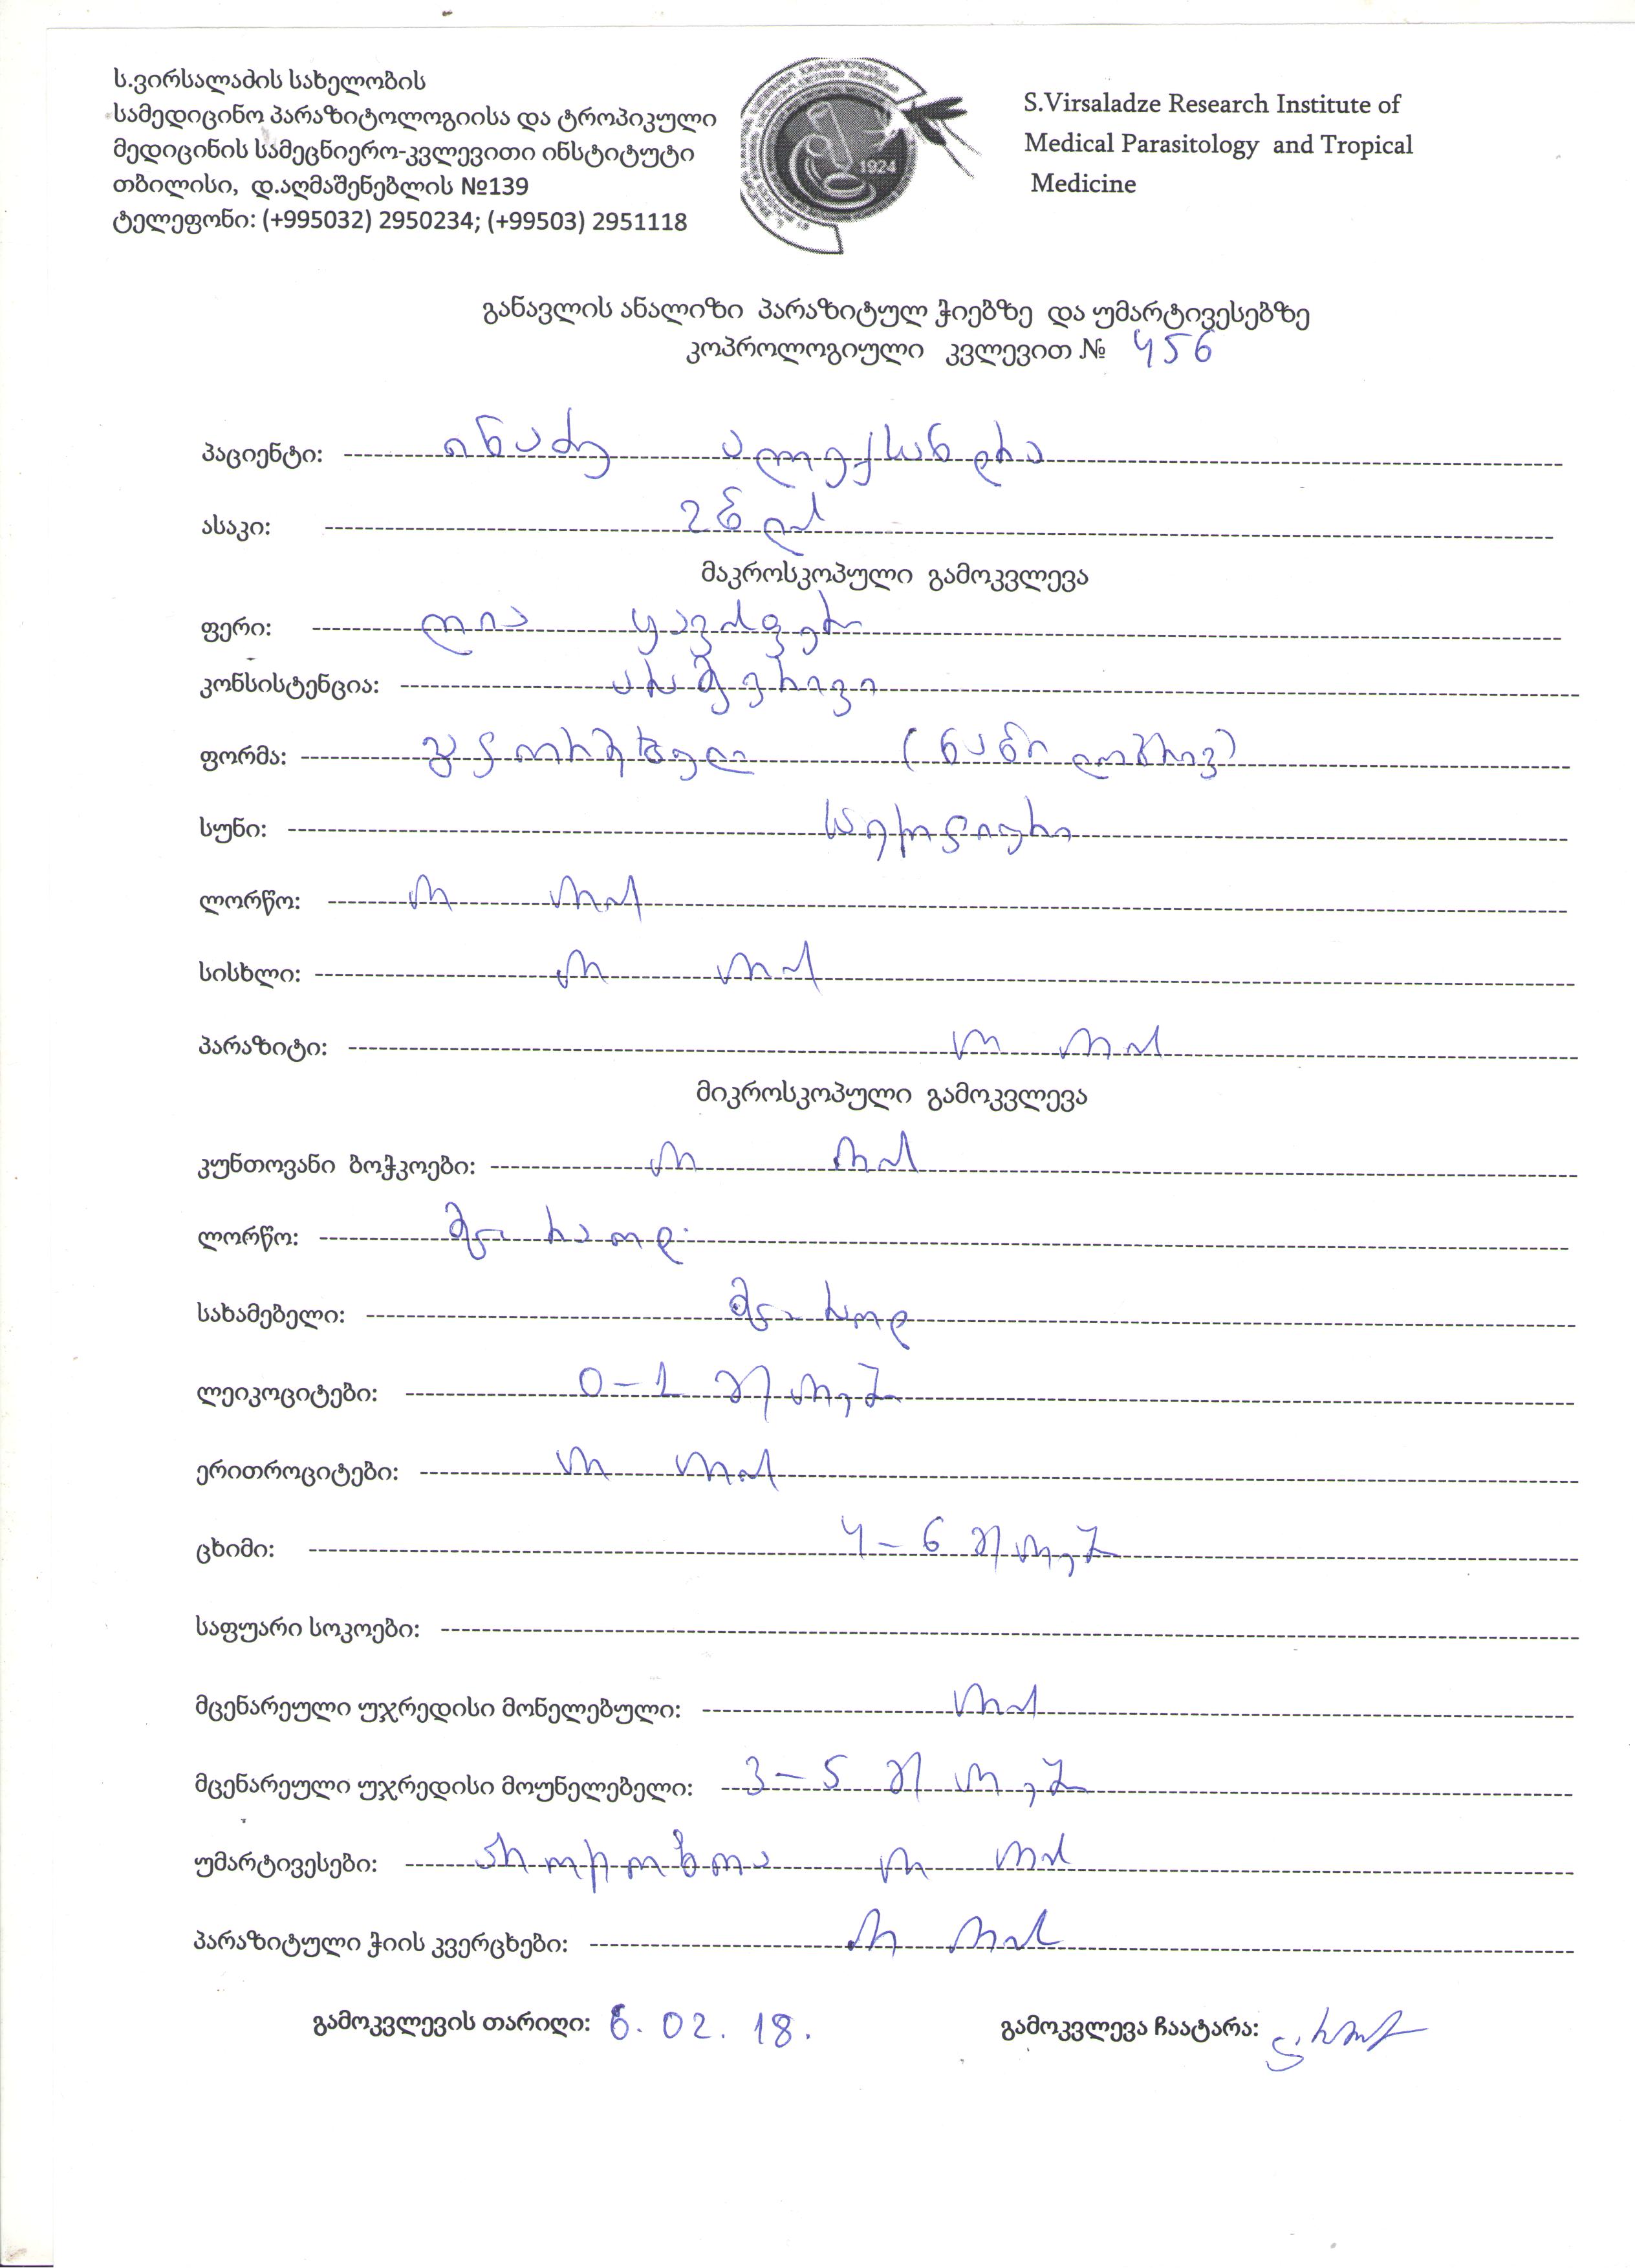 ს.ვირსალაძის სახელობის
სამედიცინო პარაზიტოლოგიისა და ტროპიკული
მედიცინის სამეცნიერო-კვლევითი ინსტიტუტი
თბილისი, დ.აღმაშენებლის №139
ტელეფონი: (+995032) 2950234; (+99503) 2951118
1924
S.Virsaladze Research Institute of
Medical Parasitology and Tropical
Medicine
განავლის ანალიზი პარაზიტულ ჭიებზე და უმარტივესებზე
კოპროლოგიული კვლევით № 456
პაციენტი: ინაძე ალექსანდრა
ასაკი: 2
მაკროსკოპული გამოკვლევა
ფერი: ღია ყავისფერი
კონსისტენცია:
ფორმა: გაფორმებული
სუნი: სპეციფიური
ლორწო: არ არის
სისხლი: არ არის
პარაზიტი: არ არის
მიკროსკოპული გამოკვლევა
კუნთოვანი ბოჭკოები: არ არის
ლორწო: მც. რაოდ.
სახამებელი: მც. რაოდ
ლეიკოციტები: 0-1 მ/არეში
ერითროციტები: არ არის
ცხიმი: 4-6 მ/არეში
საფუარი სოკოები:
მცენარეული უჯრედისი მონელებული: არის
მცენარეული უჯრედისი მოუნელებელი: 3-5 მ/არეში
უმარტივესები: არ არის
პარაზიტული ჭიის კვერცხები: არ არის
გამოკვლევის თარიღი: 6.02.18.
გამოკვლევა ჩაატარა: